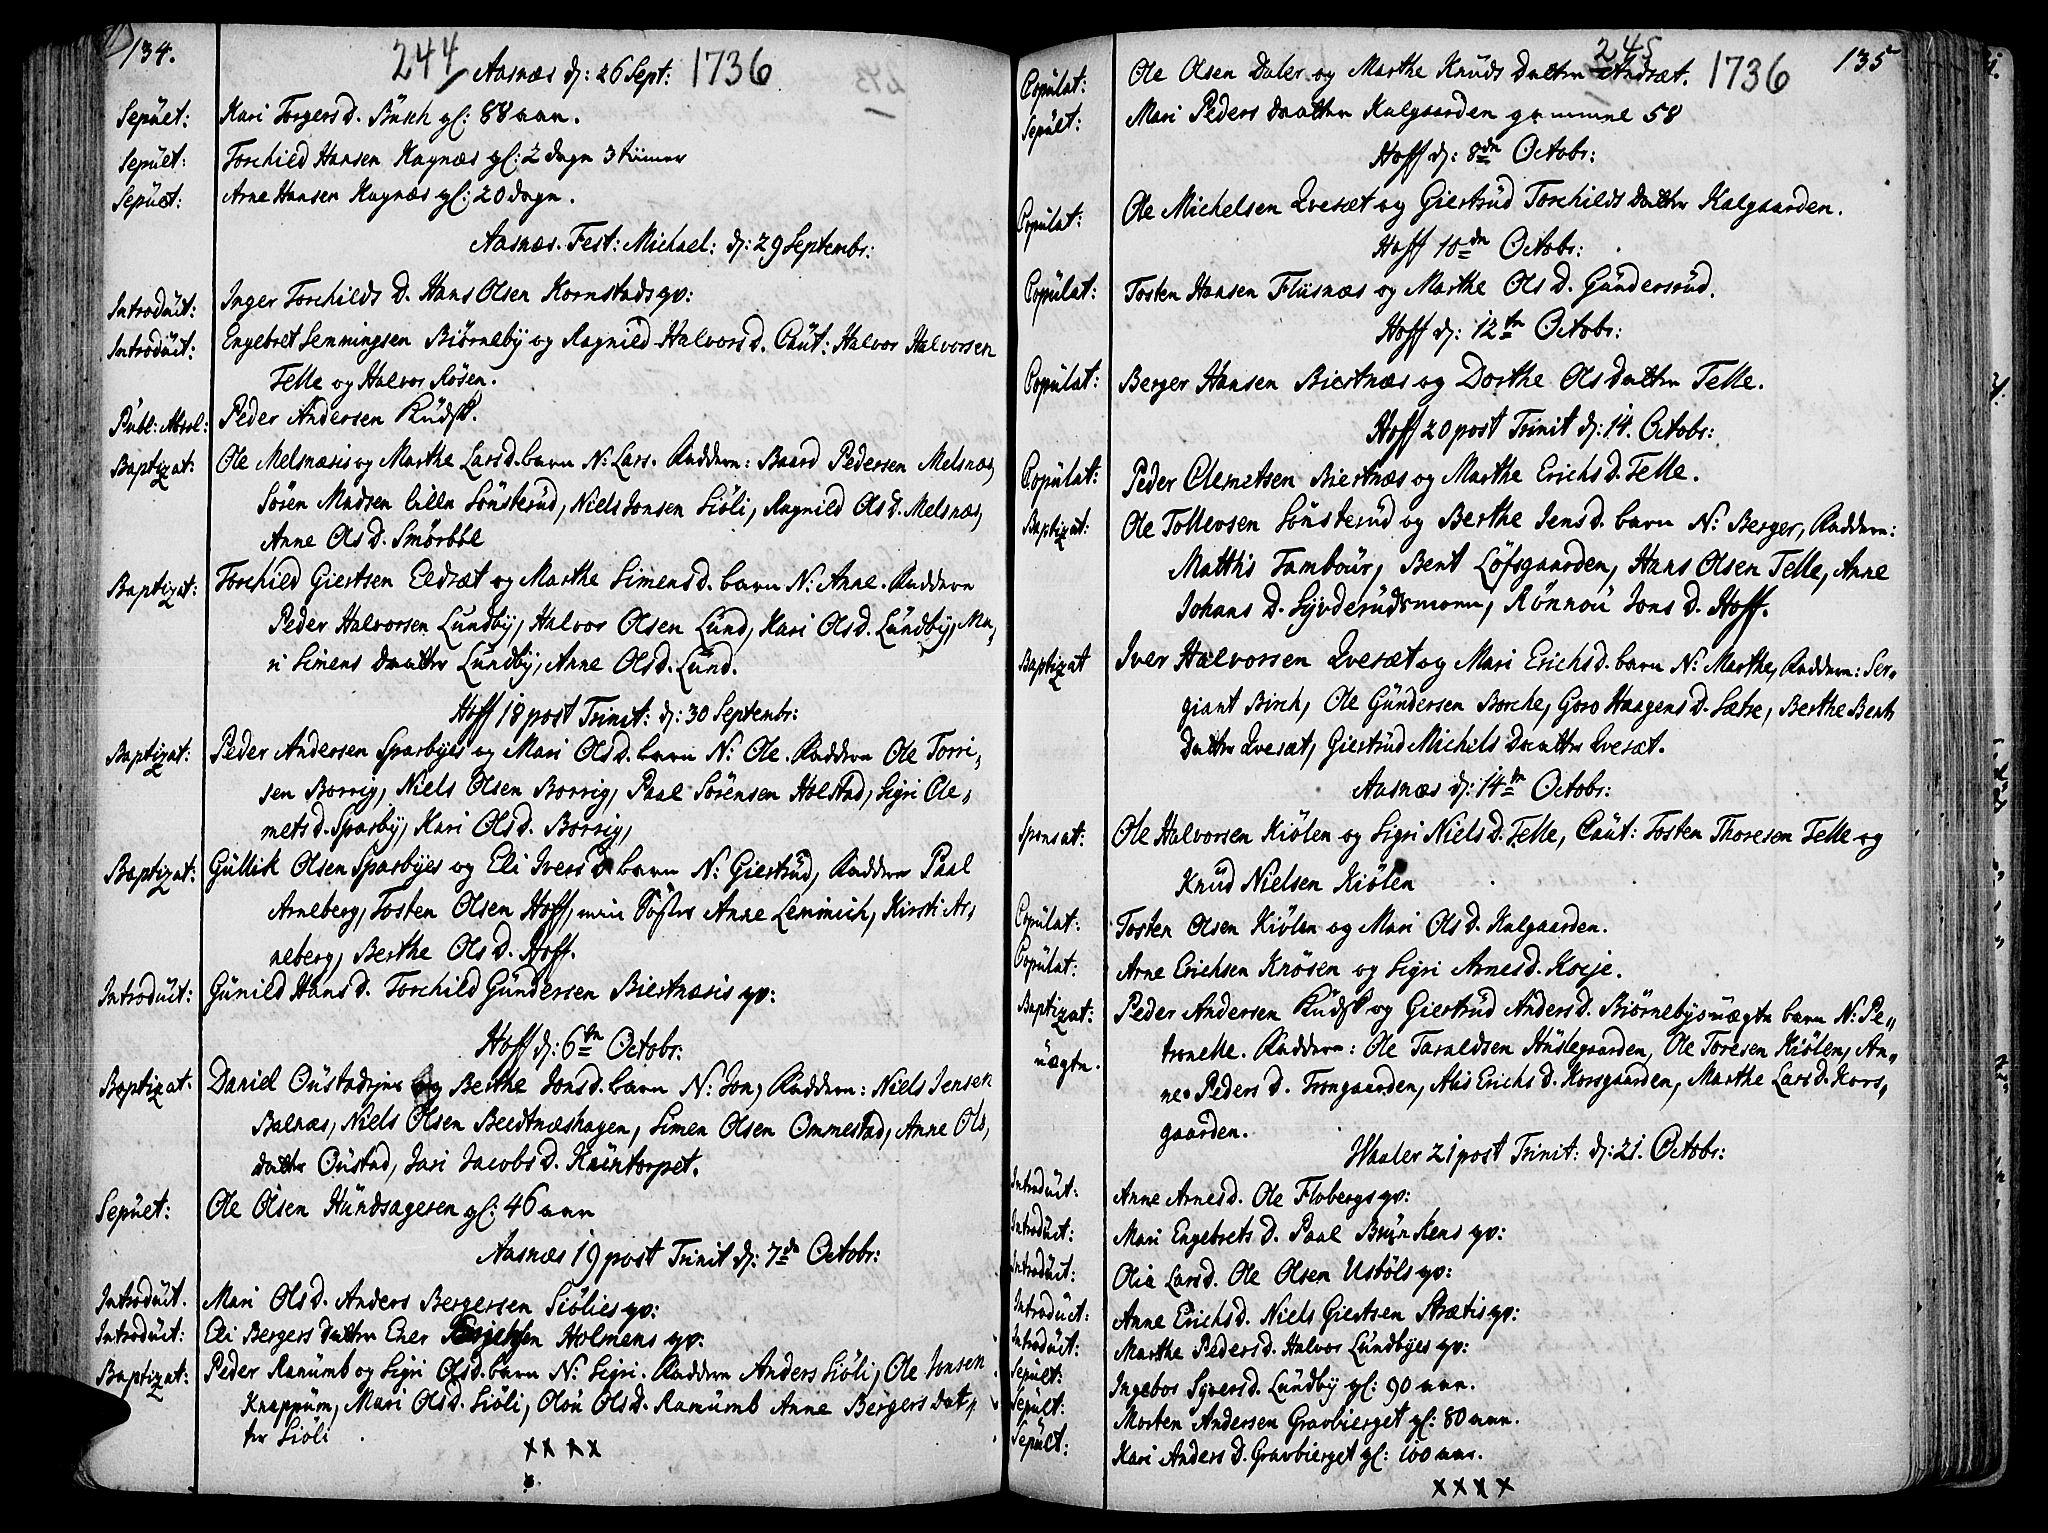 134.
244 Aasnæs d: 26 Sept: 1736
Sepült: Kari Torgers d. gl: 88 aar.
Sepült: Torchild Hansen Hagnæs gl: 2 dage 3 tiimer
Sepült: Arne Hansen Hagnæs gl: 20 dage.
Aasnæs. Fest: Michael: d: 29 Septembr:
Introdüit: Inger Torchilds D. Hans Olsen Kornstads qv:
Introdüit: Engebret Semmingsen Biörneby og Ragnild Halvors d. Caüt: Halvor Halvorsen
Telle og Halvor Rösen.
Publ: Absol: Peder Andersen
Baptizat: Ole Melsnæsis og Marthe Lars d. barn N: Lars. Faddere: Baard Pedersen Melsnæs,
Sören Madsen lille Sönsterüd, Niels Jonsen Siöli, Ragnild Ols D. Melsnæs,
Anne Ols D. Smörböl
Baptizat: Torchild Giertsen Eldsæt og Marthe Simens d. barn N: Anne. Faddere
Peder Halvorsen Lündby, Halvor Olsen Lünd, Kari Ols d. Lündby, Ma,,
ri Simens daatter Lündby, Anne Ols d. Lünd.
Hoff 18 post Trinit: d: 30 Septembr:
Baptizat: Peder Andersen Sparbyes og Mari Ols d. barn N: Ole. Faddere Ole Torri,,
sen Borrig, Niels Olsen Borrig, Paal Sörensen Holstad, Sigri Cle,,
mets d. Sparby, Kari Ols d. Borrig,
Baptizat: Güllik Olsen Sparbyes og Eli Ivers D. barn N: Giertrüd, Faddere Paal
Arneberg, Tosten Olsen Hoff, min Söster Anne Lemmich, Kirsti Ar,,
neberg, Berthe Ols D. Hoff.
Introdüit: Günild Hans d. Torchild Gündersen Biertnæsis qv:
Hoff d: 6te Octobr:
Baptizat: Daniel og Berthe Jons d. barn N: Jon, Faddere: Niels Jensen
Balnæs, Niels Olsen Beedtnæshagen, Simen Olsen Ommestad, Anne Ols,,
datter Oüstad, Jari Jacobs D.
Sepüet: Ole Olsen Hündsageren gl: 46 aar
Aasnæs 19 post Trinit d: 7de Octobr:
Introdüit. Mari Ols d. Anders Bergersen Siölies qv:
Introdüit: Eli Bergers datter Ener Holmens qv:
Baptizat: Peder Ramümb og Sigri Ols d. barn N: Sigri. Faddere Anders Siöli, Ole Jonsen
Knappüm, Mari Ols d. Siöli, Oloü Ols d. Ramümb Anne Bergers dat,,
ter Siöli
x x x x
245 1736 135
Copülat: Ole Olsen Daler og Marthe Knüds datter Andsæt.
Sepült: Mari Peders daatter Kalgaarden gammel 58
Hoff d: 8de Octobr:
Copülat: Ole Michelsen Qvesæt og Giertrüd Torchilds datter Kalgaarden.
Hoff 10de Octobr:
Copülat: Tosten Hansen Flisnæs og Marthe Ols D. Gündersrüd.
Hoff d: 12te Octobr:
Copülat: Berger Hansen Biertnæs og Dorthe Ols datter Telle.
Hoff 20 post Trinit d: 14. Octobr:
Copülat: Peder Clemetsen Biertnæs og Marthe Erichs d. Telle.
Baptizat: Ole Tollevsen Sönsterüd og Berthe Jens d. barn N: Berger, Faddere:
Matthis Tamboür, Bent Löfsgaarden, Hans Olsen Telle, Anne
Johans D. Syvderüdsmoen, Rönnoü Jons D. Hoff.
Baptizat Iver Halvorsen Qvesæt og Mari Erichs d. barn N: Marthe, Faddere: Ser,,
giant Birch, Ole Gündersen Borche, Goro Haagens D. Sætre, Berthe Bents
datter Qvesæt, Giertrüd Michils daatter Qvesæt.
Aasnæs d: 14de Octobr:
Sponsat: Ole Halvorsen Kiölen og Sigri Niels D. Telle, Caüt: Tosten Thoresen Telle og
Knüd Nielsen Kiölen
Copülat: Tosten Olsen Kiölen og Mari Ols D. Kalgaarden.
Copülat: Arne Erichsen Knösen og Sigri Arnes d. Koeje.
Baptizat: Peder Andersen og Giertrüd Anders d. Biörnebys üægte barn N: Pe,,
üægte. tronelle. Faddere: Ole Taraldsen Hüslegaarden, Ole Toresen Kiölen, An,,
ne Peders d. Trongaarden, Alis Erichs d. Korsgaarden, Marthe Lars d. Kors,,
gaarden.
Waaler 21 post Trinit: d: 21. Octobr:
Introdüit: Anne Arnes d. Ole Flobergs qv:
Introdüit: Mari Engebrets D. Paal Brünkens qv:
Introdüit: Olia Lars d. Ole Olsen Usböls qv:
Introdüit: Anne Erichs d. Niels Giertsen Strætis qv:
Introdüit: Marthe Peders d. Halvor Lündbyes qv:
Sepült: Ingebor Syvers d. Lündby gl: 90 aar.
Sepült: Morten Andersen Gravbierget gl: 80 aar.
Sepült: Kari Anders D. Gravbierget gl: 100 aar.
x x x x